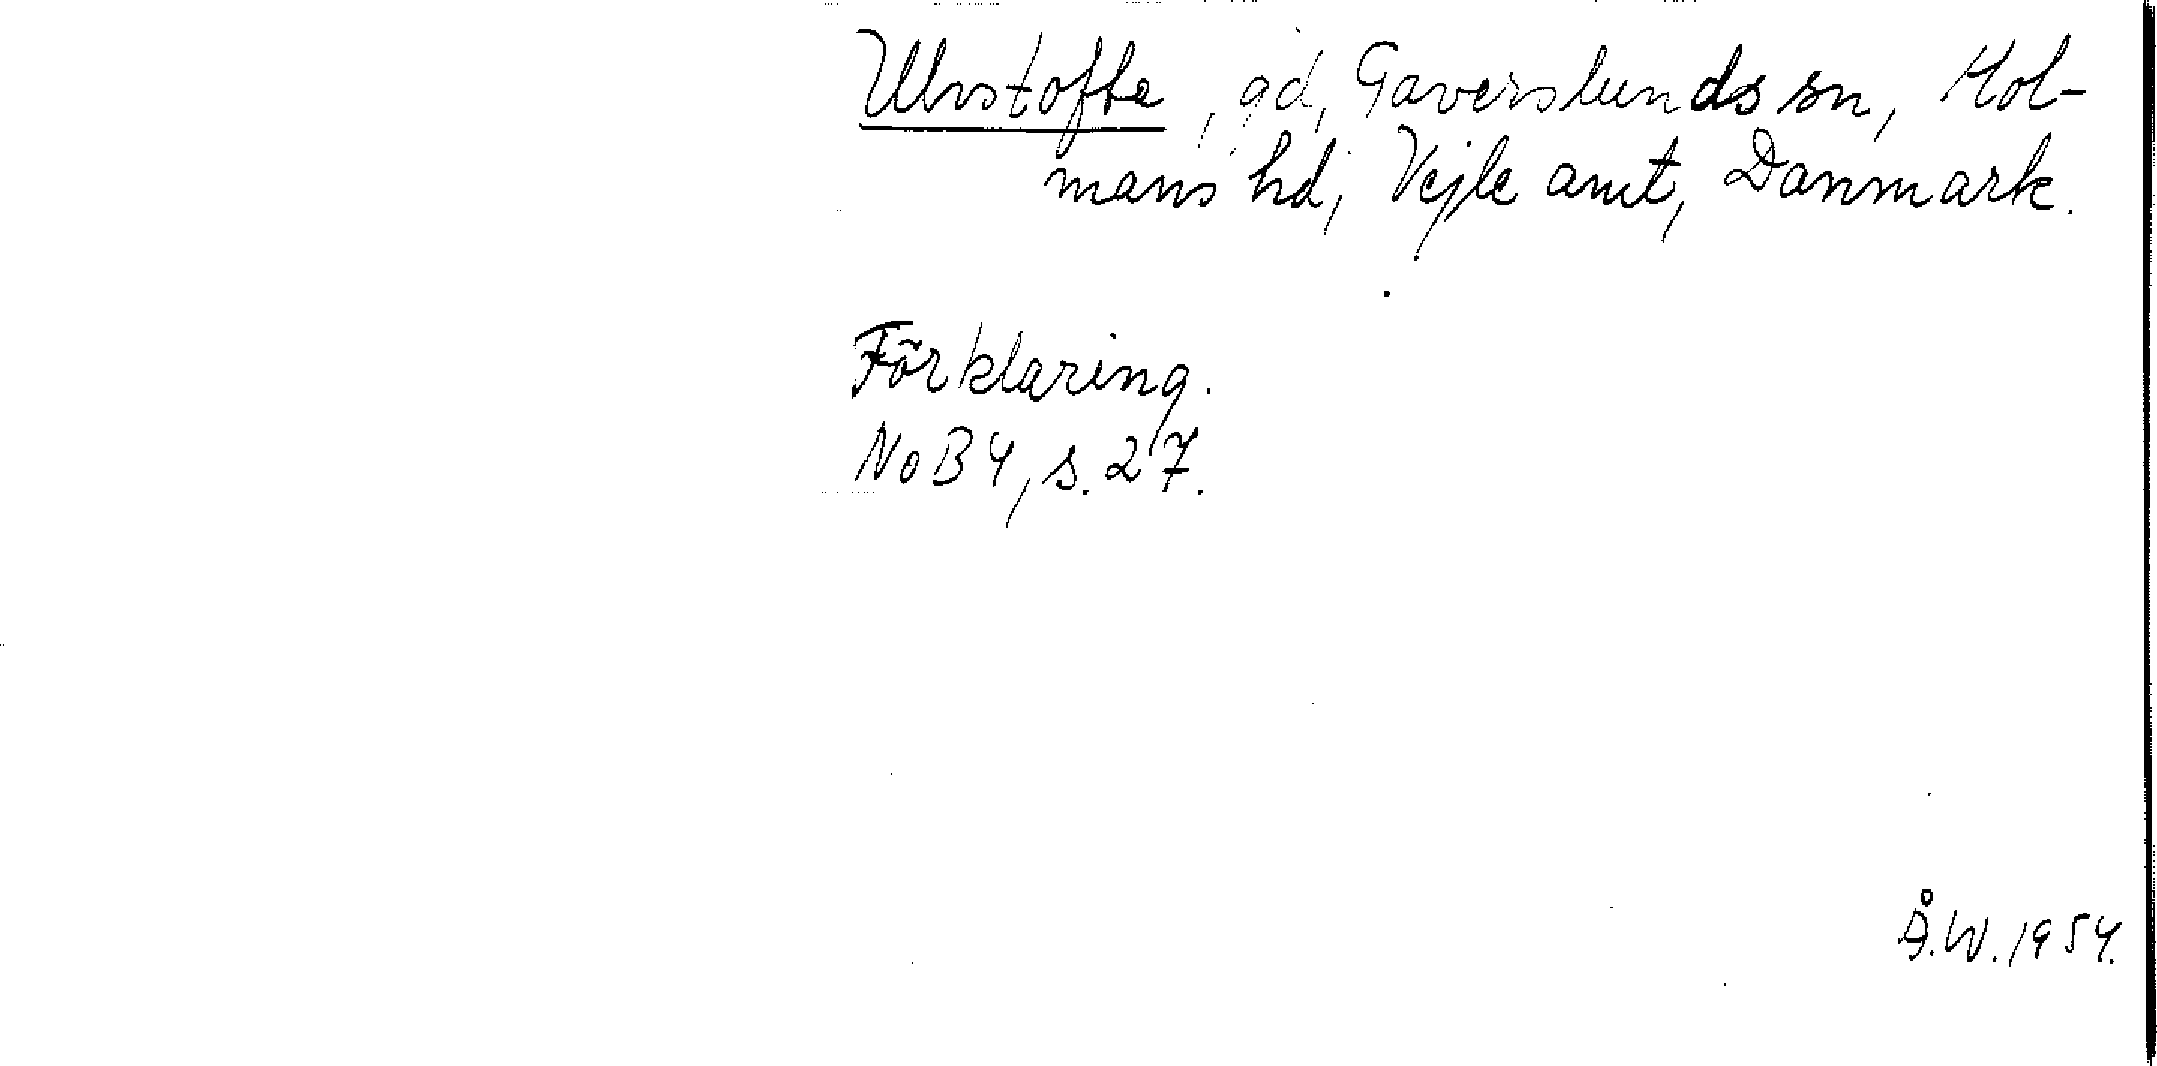 Ulvstofte, gd, Gaverslunds sn, Hol-
mans hd, Vejle amt, Danmark.
Förklaring.
NoB 4, s. 27.
Å.W. 1954.